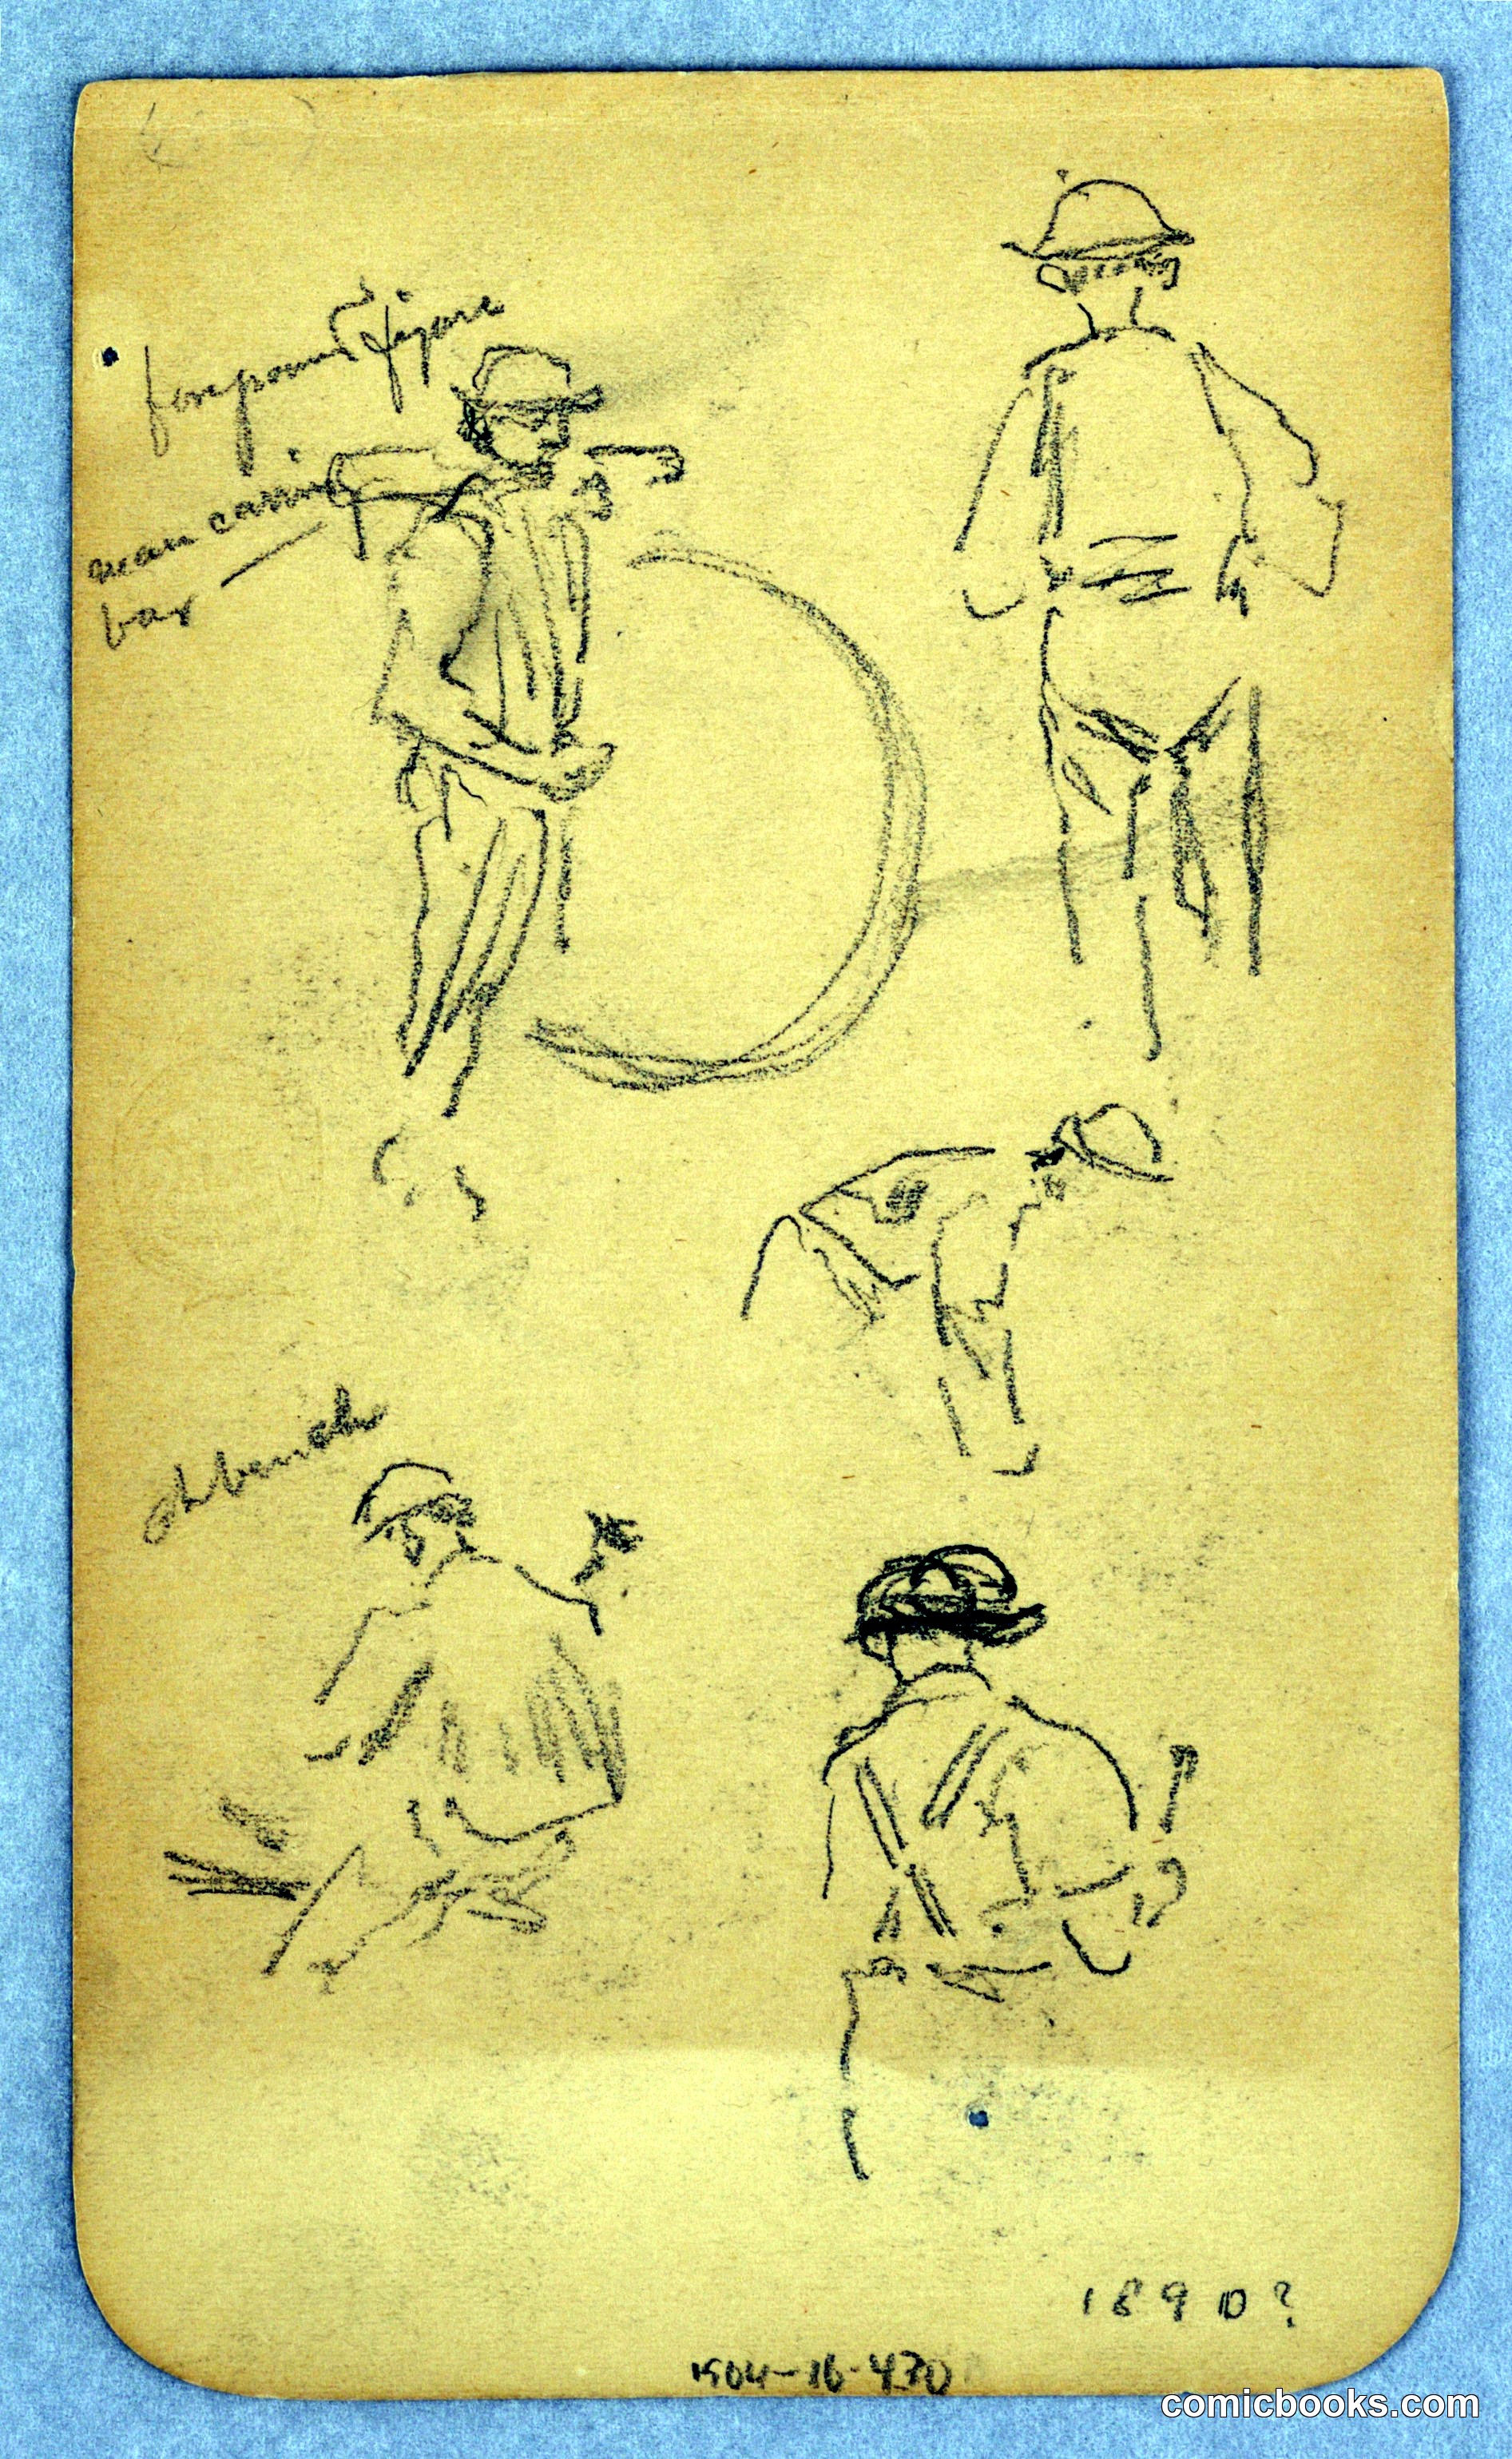 foreground figure
man carri
bar
at bench
1890?
1904-16-430
comicbooks.com